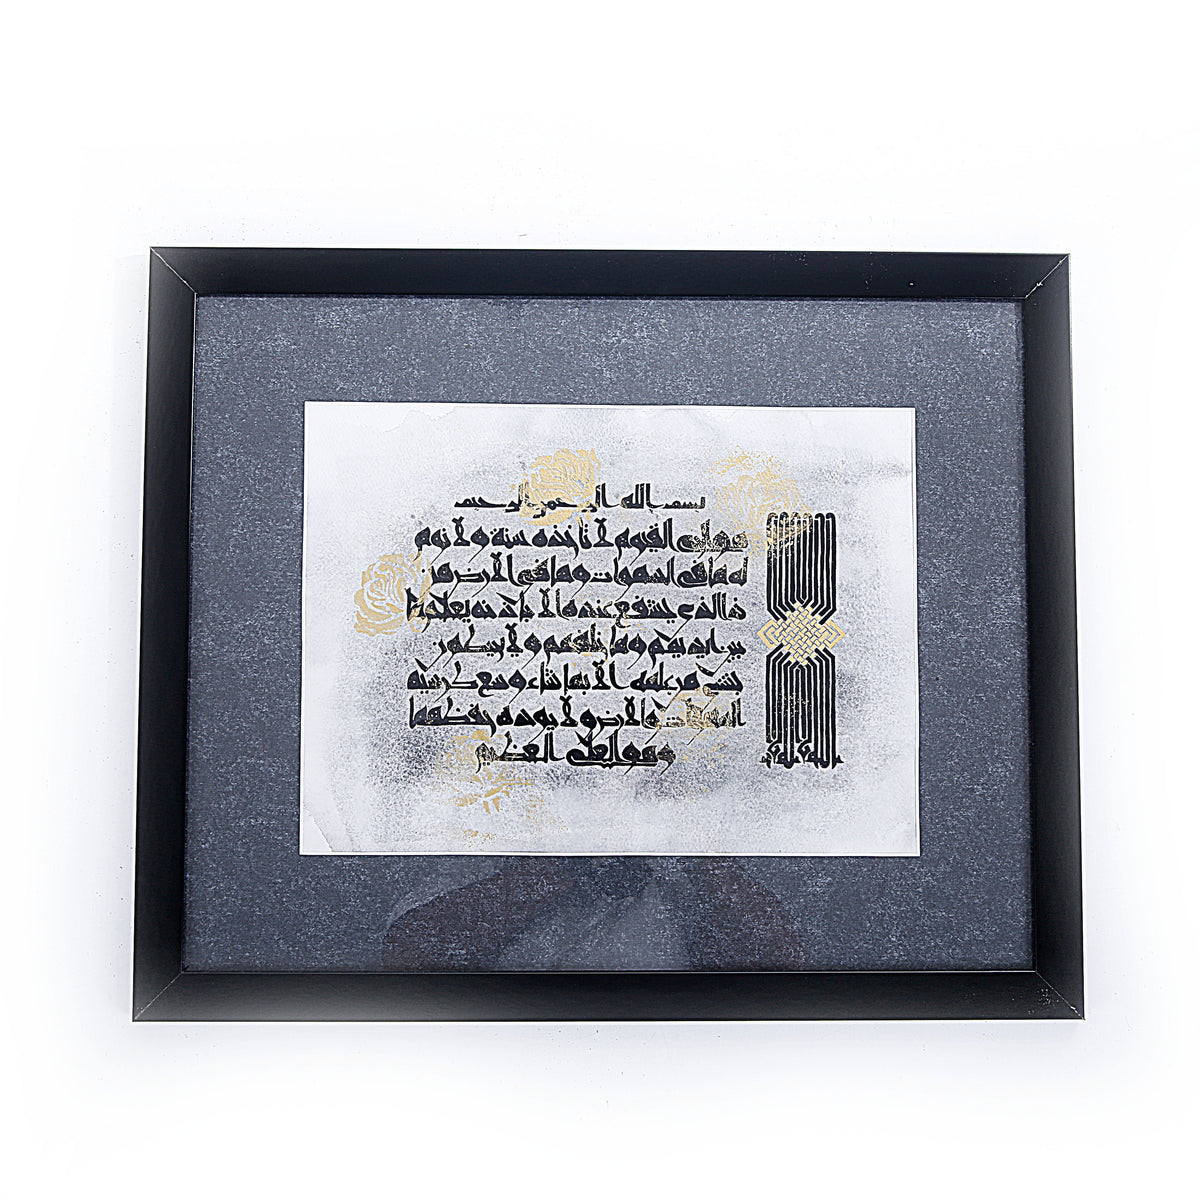 بسم الله الرحمن الرحيم
هو الحي القيوم لا تأخذه سنة ولا نوم
له ما في السموات وما في الأرض من
ذا الذي يشفع عنده إلا بإذنه يعلم ما
بين أيديهم وما خلفهم ولا يحيطون
بشيء من علمه إلا بما شاء وسع كرسيه
السموات والأرض ولا يؤده حفظهما
وهو العلي العظيم